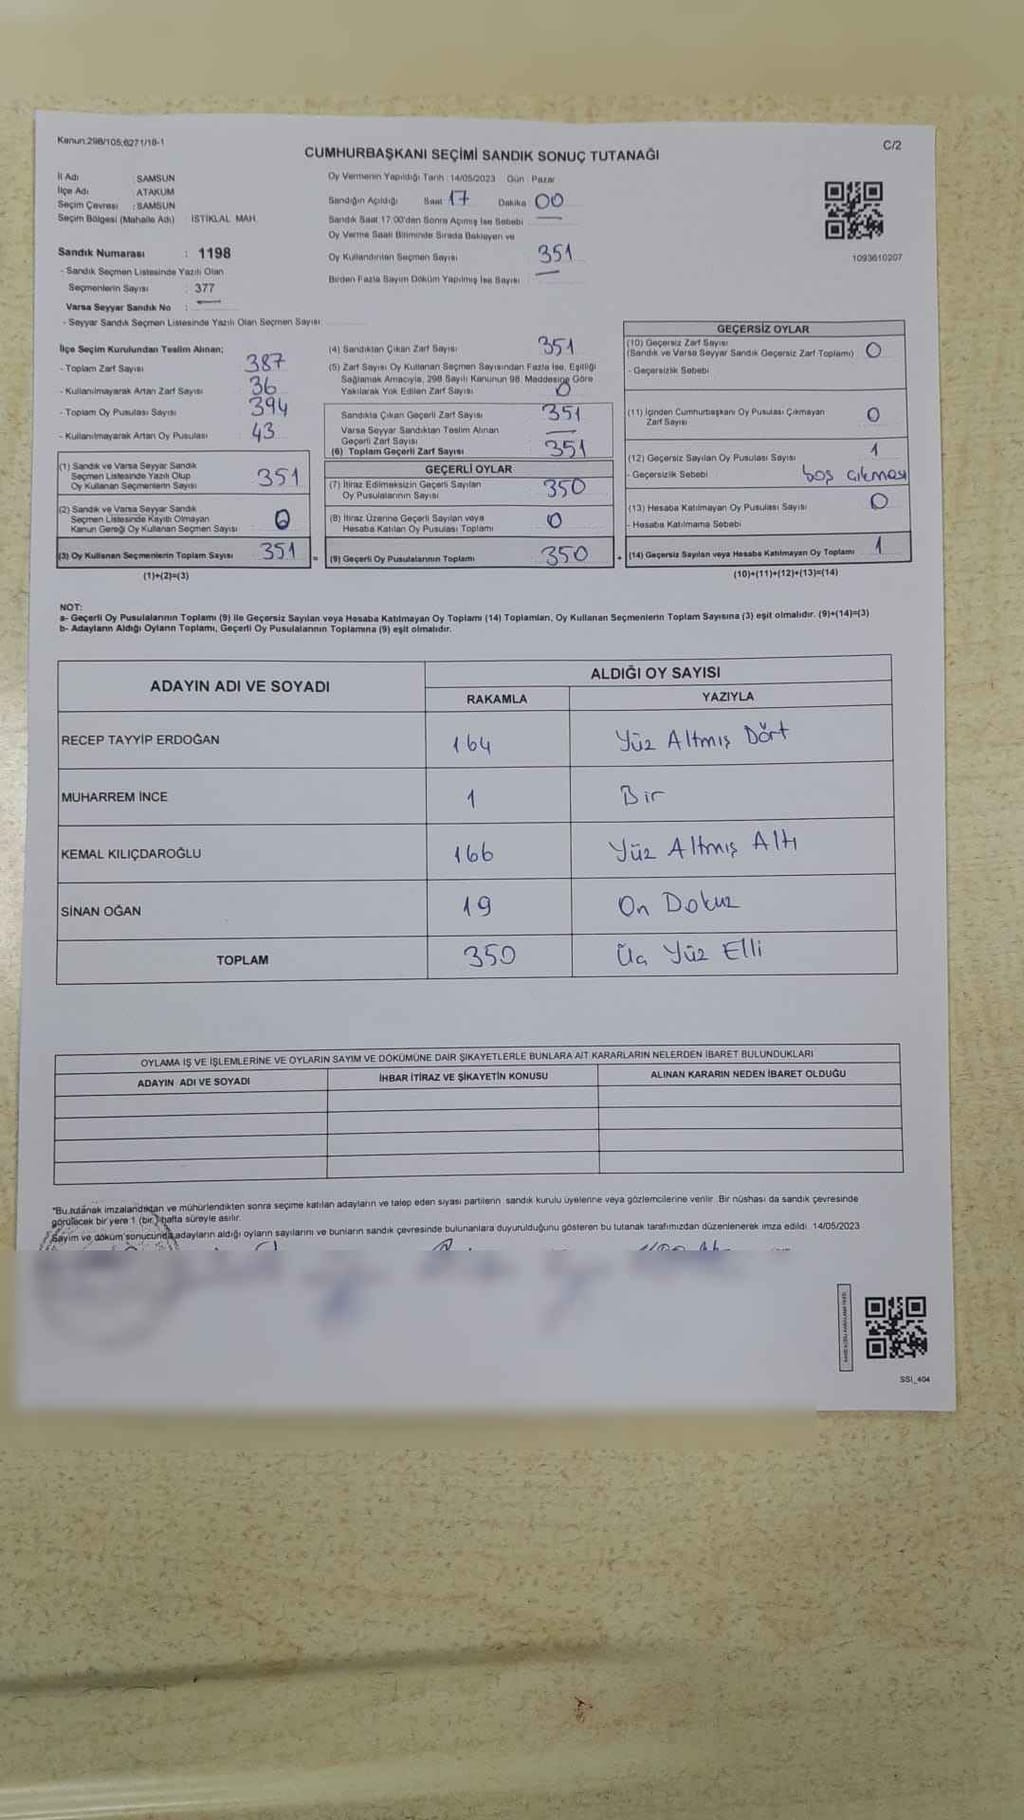 Kanun:298/105;6271/18-1
C/2
CUMHURBAŞKANI SEÇİMİ SANDIK SONUÇ TUTANAĞI
İl Adı : SAMSUN
İlçe Adı : ATAKUM
Seçim Çevresi : SAMSUN
Seçim Bölgesi (Mahalle Adı) İSTİKLAL MAH.
Sandık Numarası : 1198
- Sandık Seçmen Listesinde Yazılı Olan
Seçmenlerin Sayısı : 377
Varsa Seyyar Sandık No : —
- Seyyar Sandık Seçmen Listesinde Yazılı Olan Seçmen Sayısı:
Oy Vermenin Yapıldığı Tarih : 14/05/2023 Gün : Pazar
Sandığın Açıldığı Saat 17 Dakika 00
Sandık Saat 17.00'den Sonra Açılmış İse Sebebi —
Oy Verme Saati Bitiminde Sırada Bekleyen ve
Oy Kullandırılan Seçmen Sayısı 351
Birden Fazla Sayım Döküm Yapılmış İse Sayısı —
1093610207
İlçe Seçim Kurulundan Teslim Alınan;
- Toplam Zarf Sayısı 387
- Kullanılmayarak Artan Zarf Sayısı 36
- Toplam Oy Pusulası Sayısı 394
- Kullanılmayarak Artan Oy Pusulası 43
(1) Sandık ve Varsa Seyyar Sandık
Seçmen Listesinde Yazılı Olup
Oy Kullanan Seçmenlerin Sayısı 351
(2) Sandık ve Varsa Seyyar Sandık
Seçmen Listesinde Kayıtlı Olmayan
Kanun Gereği Oy Kullanan Seçmen Sayısı 0
(3) Oy Kullanan Seçmenlerin Toplam Sayısı 351 =
(1)+(2)=(3)
(4) Sandıktan Çıkan Zarf Sayısı 351
(5) Zarf Sayısı Oy Kullanan Seçmen Sayısından Fazla İse, Eşitliği
Sağlamak Amacıyla, 298 Sayılı Kanunun 98. Maddesine Göre
Yakılarak Yok Edilen Zarf Sayısı 0
Sandıkta Çıkan Geçerli Zarf Sayısı 351
Varsa Seyyar Sandıktan Teslim Alınan
Geçerli Zarf Sayısı —
(6) Toplam Geçerli Zarf Sayısı 351
GEÇERLİ OYLAR
(7) İtiraz Edilmeksizin Geçerli Sayılan
Oy Pusulalarının Sayısı 350
(8) İtiraz Üzerine Geçerli Sayılan veya
Hesaba Katılan Oy Pusulası Toplamı 0
(9) Geçerli Oy Pusulalarının Toplamı 350 +
GEÇERSİZ OYLAR
(10) Geçersiz Zarf Sayısı
(Sandık ve Varsa Seyyar Sandık Geçersiz Zarf Toplamı) 0
- Geçersizlik Sebebi
(11) İçinden Cumhurbaşkanı Oy Pusulası Çıkmayan
Zarf Sayısı 0
(12) Geçersiz Sayılan Oy Pusulası Sayısı 1
- Geçersizlik Sebebi boş çıkması
(13) Hesaba Katılmayan Oy Pusulası Sayısı 0
- Hesaba Katılmama Sebebi
(14) Geçersiz Sayılan veya Hesaba Katılmayan Oy Toplamı 1
(10)+(11)+(12)+(13)=(14)
NOT:
a- Geçerli Oy Pusulalarının Toplamı (9) ile Geçersiz Sayılan veya Hesaba Katılmayan Oy Toplamı (14) Toplamları, Oy Kullanan Seçmenlerin Toplam Sayısına (3) eşit olmalıdır. (9)+(14)=(3)
b- Adayların Aldığı Oyların Toplamı, Geçerli Oy Pusulalarının Toplamına (9) eşit olmalıdır.
ADAYIN ADI VE SOYADI
ALDIĞI OY SAYISI
RAKAMLA YAZIYLA
RECEP TAYYİP ERDOĞAN 164 Yüz Altmış Dört
MUHARREM İNCE 1 Bir
KEMAL KILIÇDAROĞLU 166 Yüz Altmış Altı
SİNAN OĞAN 19 On Dokuz
TOPLAM 350 Üç Yüz Elli
OYLAMA İŞ VE İŞLEMLERİNE VE OYLARIN SAYIM VE DÖKÜMÜNE DAİR ŞİKAYETLERLE BUNLARA AİT KARARLARIN NELERDEN İBARET BULUNDUKLARI
ADAYIN ADI VE SOYADI İHBAR İTİRAZ VE ŞİKAYETİN KONUSU ALINAN KARARIN NEDEN İBARET OLDUĞU
*Bu tutanak imzalandıktan ve mühürlendikten sonra seçime katılan adayların ve talep eden siyasi partilerin sandık kurulu üyelerine veya gözlemcilerine verilir. Bir nüshası da sandık çevresinde
görülecek bir yere 1 (bir) hafta süreyle asılır.
Sayım ve döküm sonucunda adayların aldığı oyların sayılarını ve bunların sandık çevresinde bulunanlara duyurulduğunu gösteren bu tutanak tarafımızdan düzenlenerek imza edildi. 14/05/2023
SSI_404